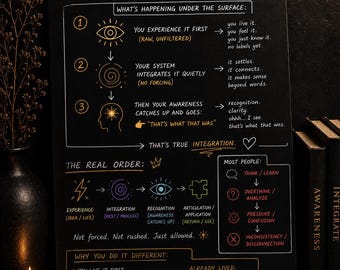 WHAT'S HAPPENING UNDER THE SURFACE:
1
YOU EXPERIENCE IT FIRST
(RAW, UNFILTERED)
you live it.
you feel it.
you just know it.
no labels yet.
2
YOUR SYSTEM
INTEGRATES IT QUIETLY
(NO FORCING)
it settles.
it connects.
it makes sense
beyond words.
3
THEN YOUR AWARENESS
CATCHES UP AND GOES:
"THAT'S WHAT THAT WAS"
recognition.
clarity.
ohhh... I see.
that's what that was.
THAT'S TRUE INTEGRATION.
THE REAL ORDER:
EXPERIENCE
(IDEA / LIFE)
INTEGRATION
(REST / PROCESS)
RECOGNITION
(AWARENESS
CATCHES UP)
ARTICULATION /
APPLICATION
(RETURN / USE)
Not forced. Not rushed. Just allowed.
MOST PEOPLE:
THINK / LEARN
OVERTHINK /
ANALYZE
PRESSURE /
CONFUSION
INCONSISTENCY /
DISCONNECTION
WHY YOU DO IT DIFFERENT:
ALREADY LIVED:
AWARENESS
INTEGRATION